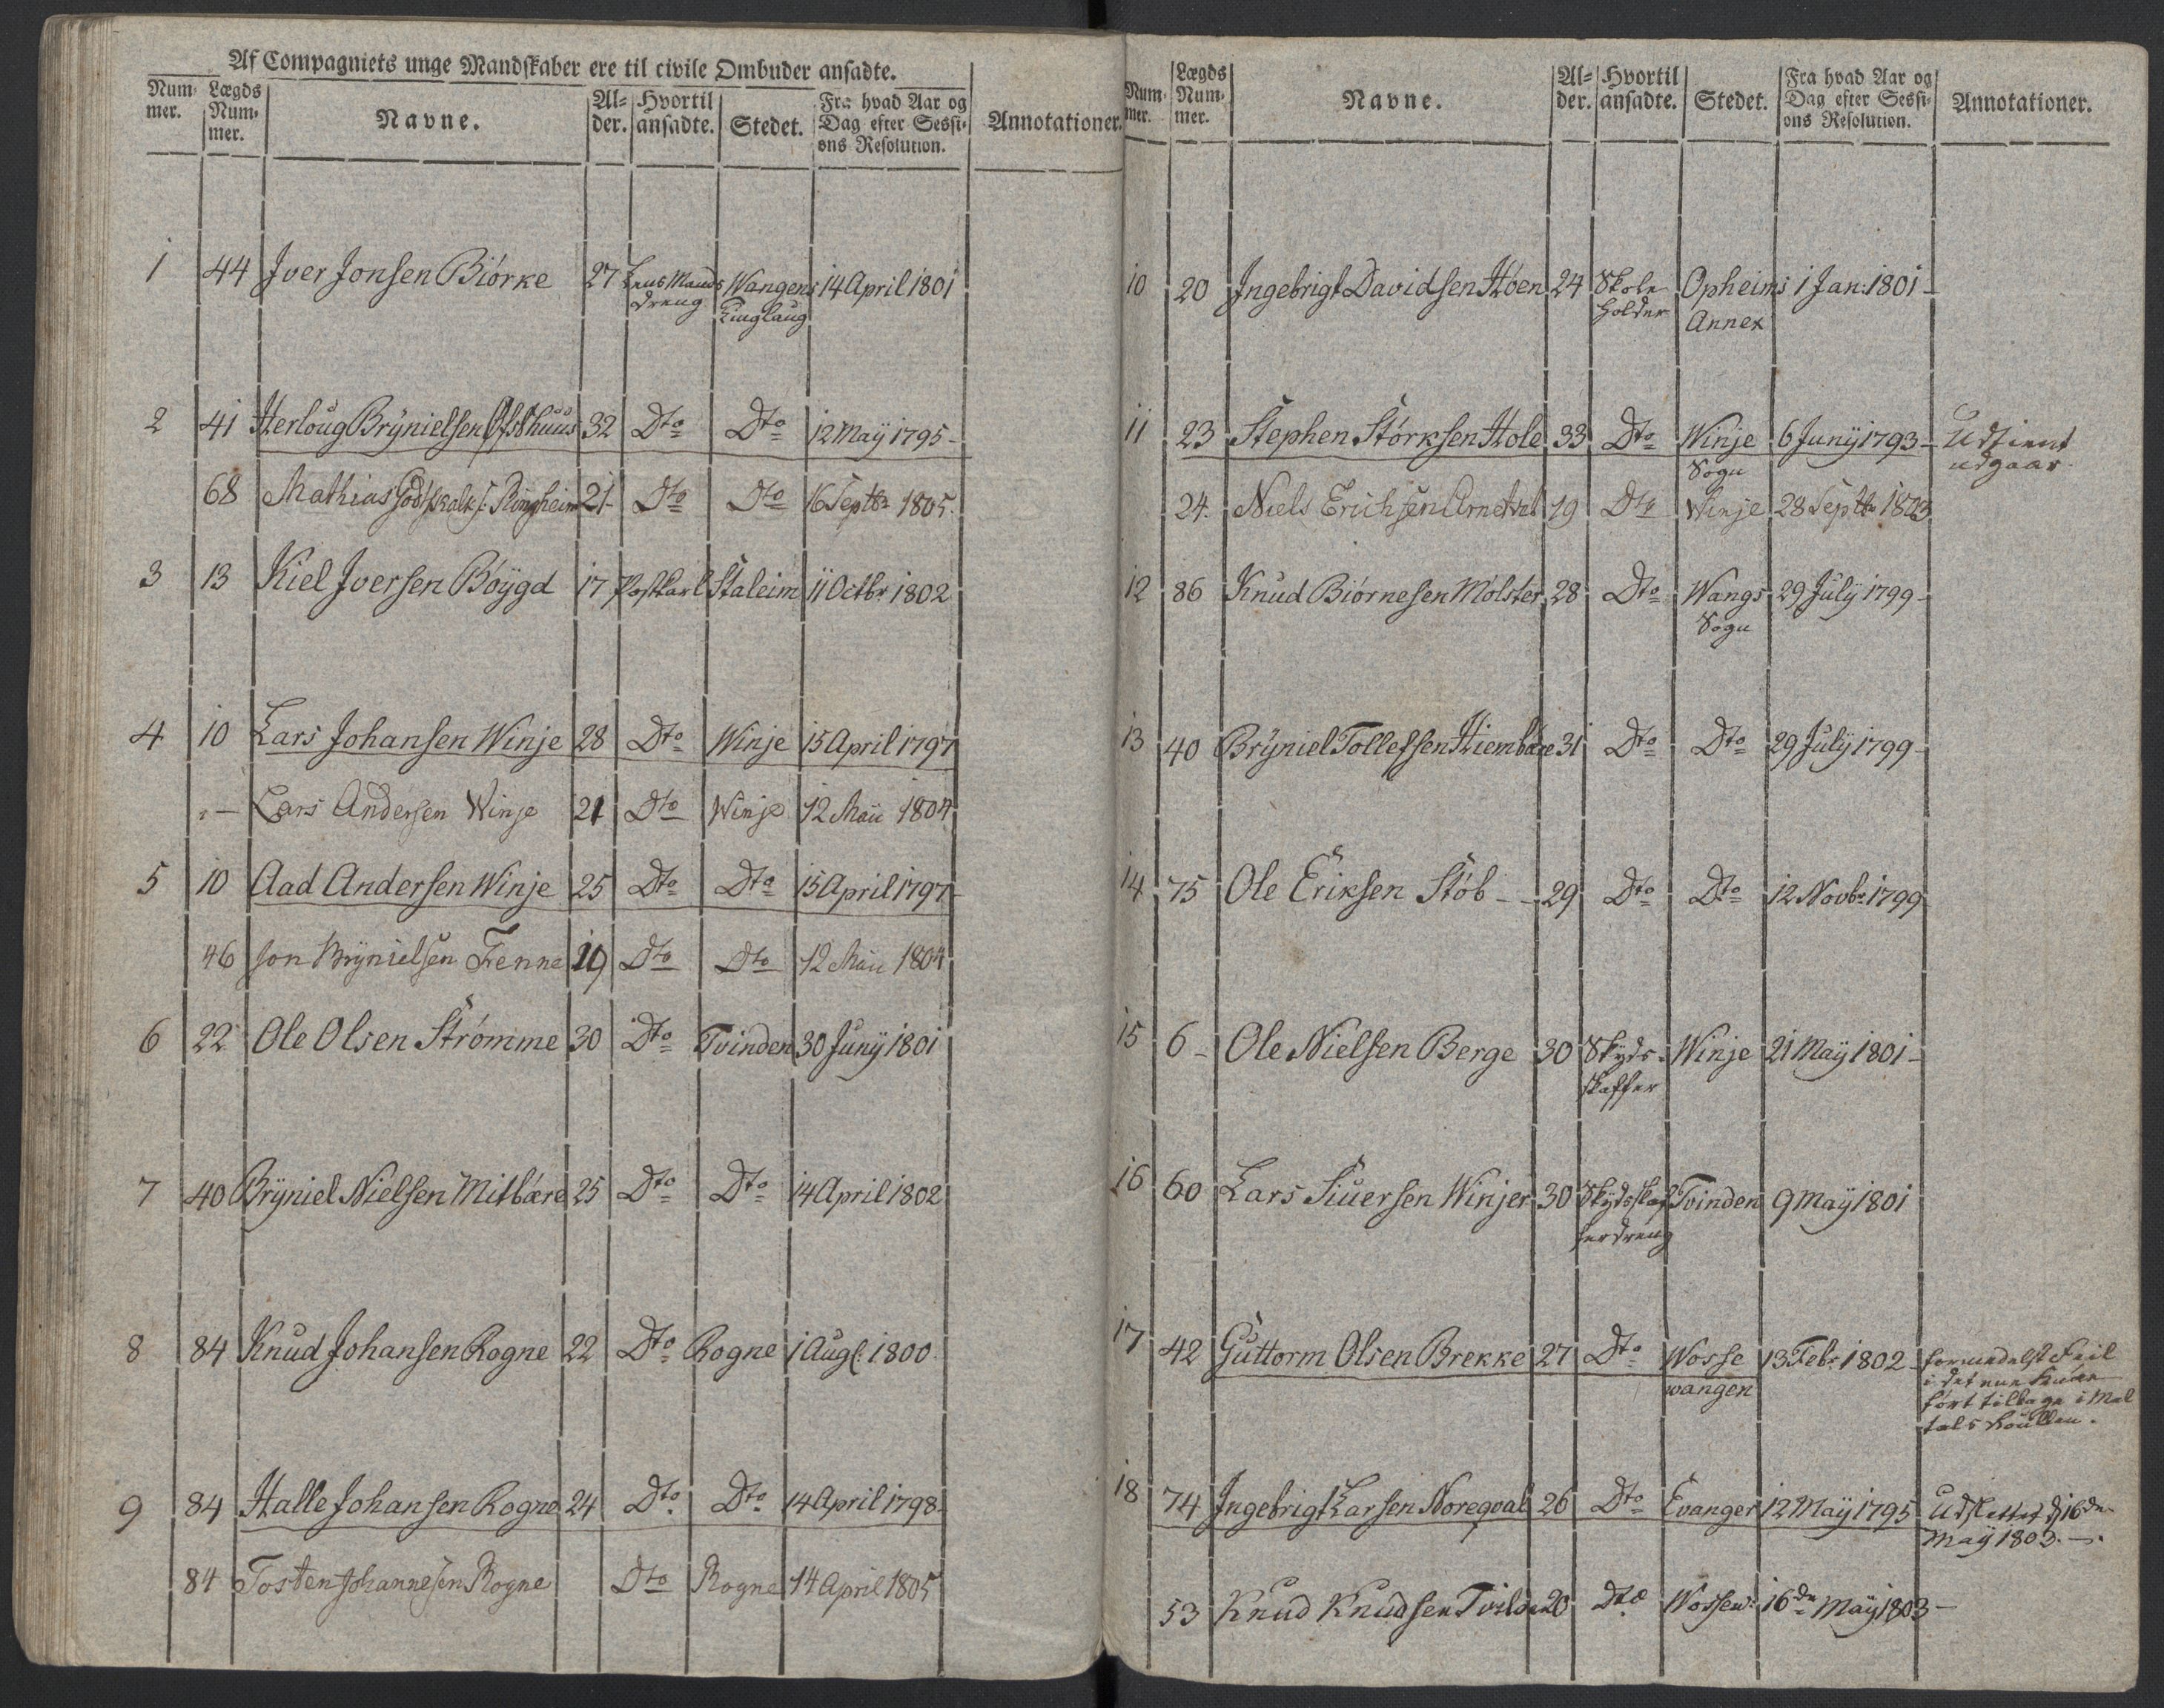 Af Compagniets unge Mandskaber ere til civile Ombuder ansadte.
Num-mer. Lægds Num-mer. Navne. Al-der. Hvortil ansadte. Stedet. Fra hvad Aar og Dag efter Sessi-ons Resolution. Annotationer.
1 44 Jver Jonsen Biörke 27 Lens Mands Wangens 14 April 1801
dreng Tinglaug
2 41 Herloug Brÿnielsen 32 Dto Dto 12 Maÿ 1795 -
68 Mathias Godskalks: Ringheim 21 Dto Dto 16 Septbr 1805.
3 13 Kiel Jversen Böÿgd 17 Postkarl Staleim 11 Octbr 1802
4 10 Lars Johansen Winje 28 Dto Winje 15 April 1797
" — Lars Andersen Winje 21 Dto Winje 12 Maii 1804
5 10 Aad Andersen Winje 25 Dto Dto 15 April 1797 -
46 Jon Brÿnielsen Fenne 19 Dto Dto 12 Maii 1804
6 22 Ole Olsen Strömme 30 Dto Tvinden 30 Junÿ 1801
7 40 Brÿniel Nielsen Mitbære 25 Dto Dto 14 April 1802
8 84 Knud Johansen Rogne 22 Dto Rogne 1 Aug: 1800
9 84 Halle Johansen Rogne 24 Dto Dto 14 April 1798 -
84 Tosten Johannesen Rogne Dto Rogne 14 April 1805
Num-mer. Lægds Num-mer. Navne. Al-der. Hvortil ansadte. Stedet. Fra hvad Aar og Dag efter Sessi-ons Resolution. Annotationer.
10 20 Jngebrigt Davidsen Höen 24 Skole Opheims 1 Jan: 1801 -
holder Annex
11 23 Stephen Störksen Hole 33 Dto Winje 6 Junÿ 1793 - Udtient
Sogn udgaar.
24. Niels Erichsen 19 Dto Winje 28 Septbr 1803
12 86 Knud Biörnesen Mölster 28 Dto Wangs 29 Julÿ 1799 -
Sogn
13 40 Brÿniel Tollefsen Hiembære 31 Dto Dto 29 Julÿ 1799 -
14 75 Ole Eriksen Stöb - - 29 Dto Dto 12 Novbr 1799
15 6 - Ole Nielsen Berge 30 Skyds- Winje 21 Maÿ 1801 -
skaffer
16 60 Lars Siuersen Winjer 30 Skydsskaf Tvinden 9 Maÿ 1801
ferdreng
17 42 Guttorm Olsen Brekke 27 Dto Wosse 13 Febr: 1802 - formedelst Feil
wangen i det ene
fört tilbage i Mal
tals Roullen.
18 74 Jngebrigt Larsen Noreqval 26 Dto Evanger 12 Maÿ 1795 Udslettet d 16de
Maÿ 1803. —
53 Knud Knudsen Tvilde 20 Dto Wossew: 16de Maÿ 1803 —